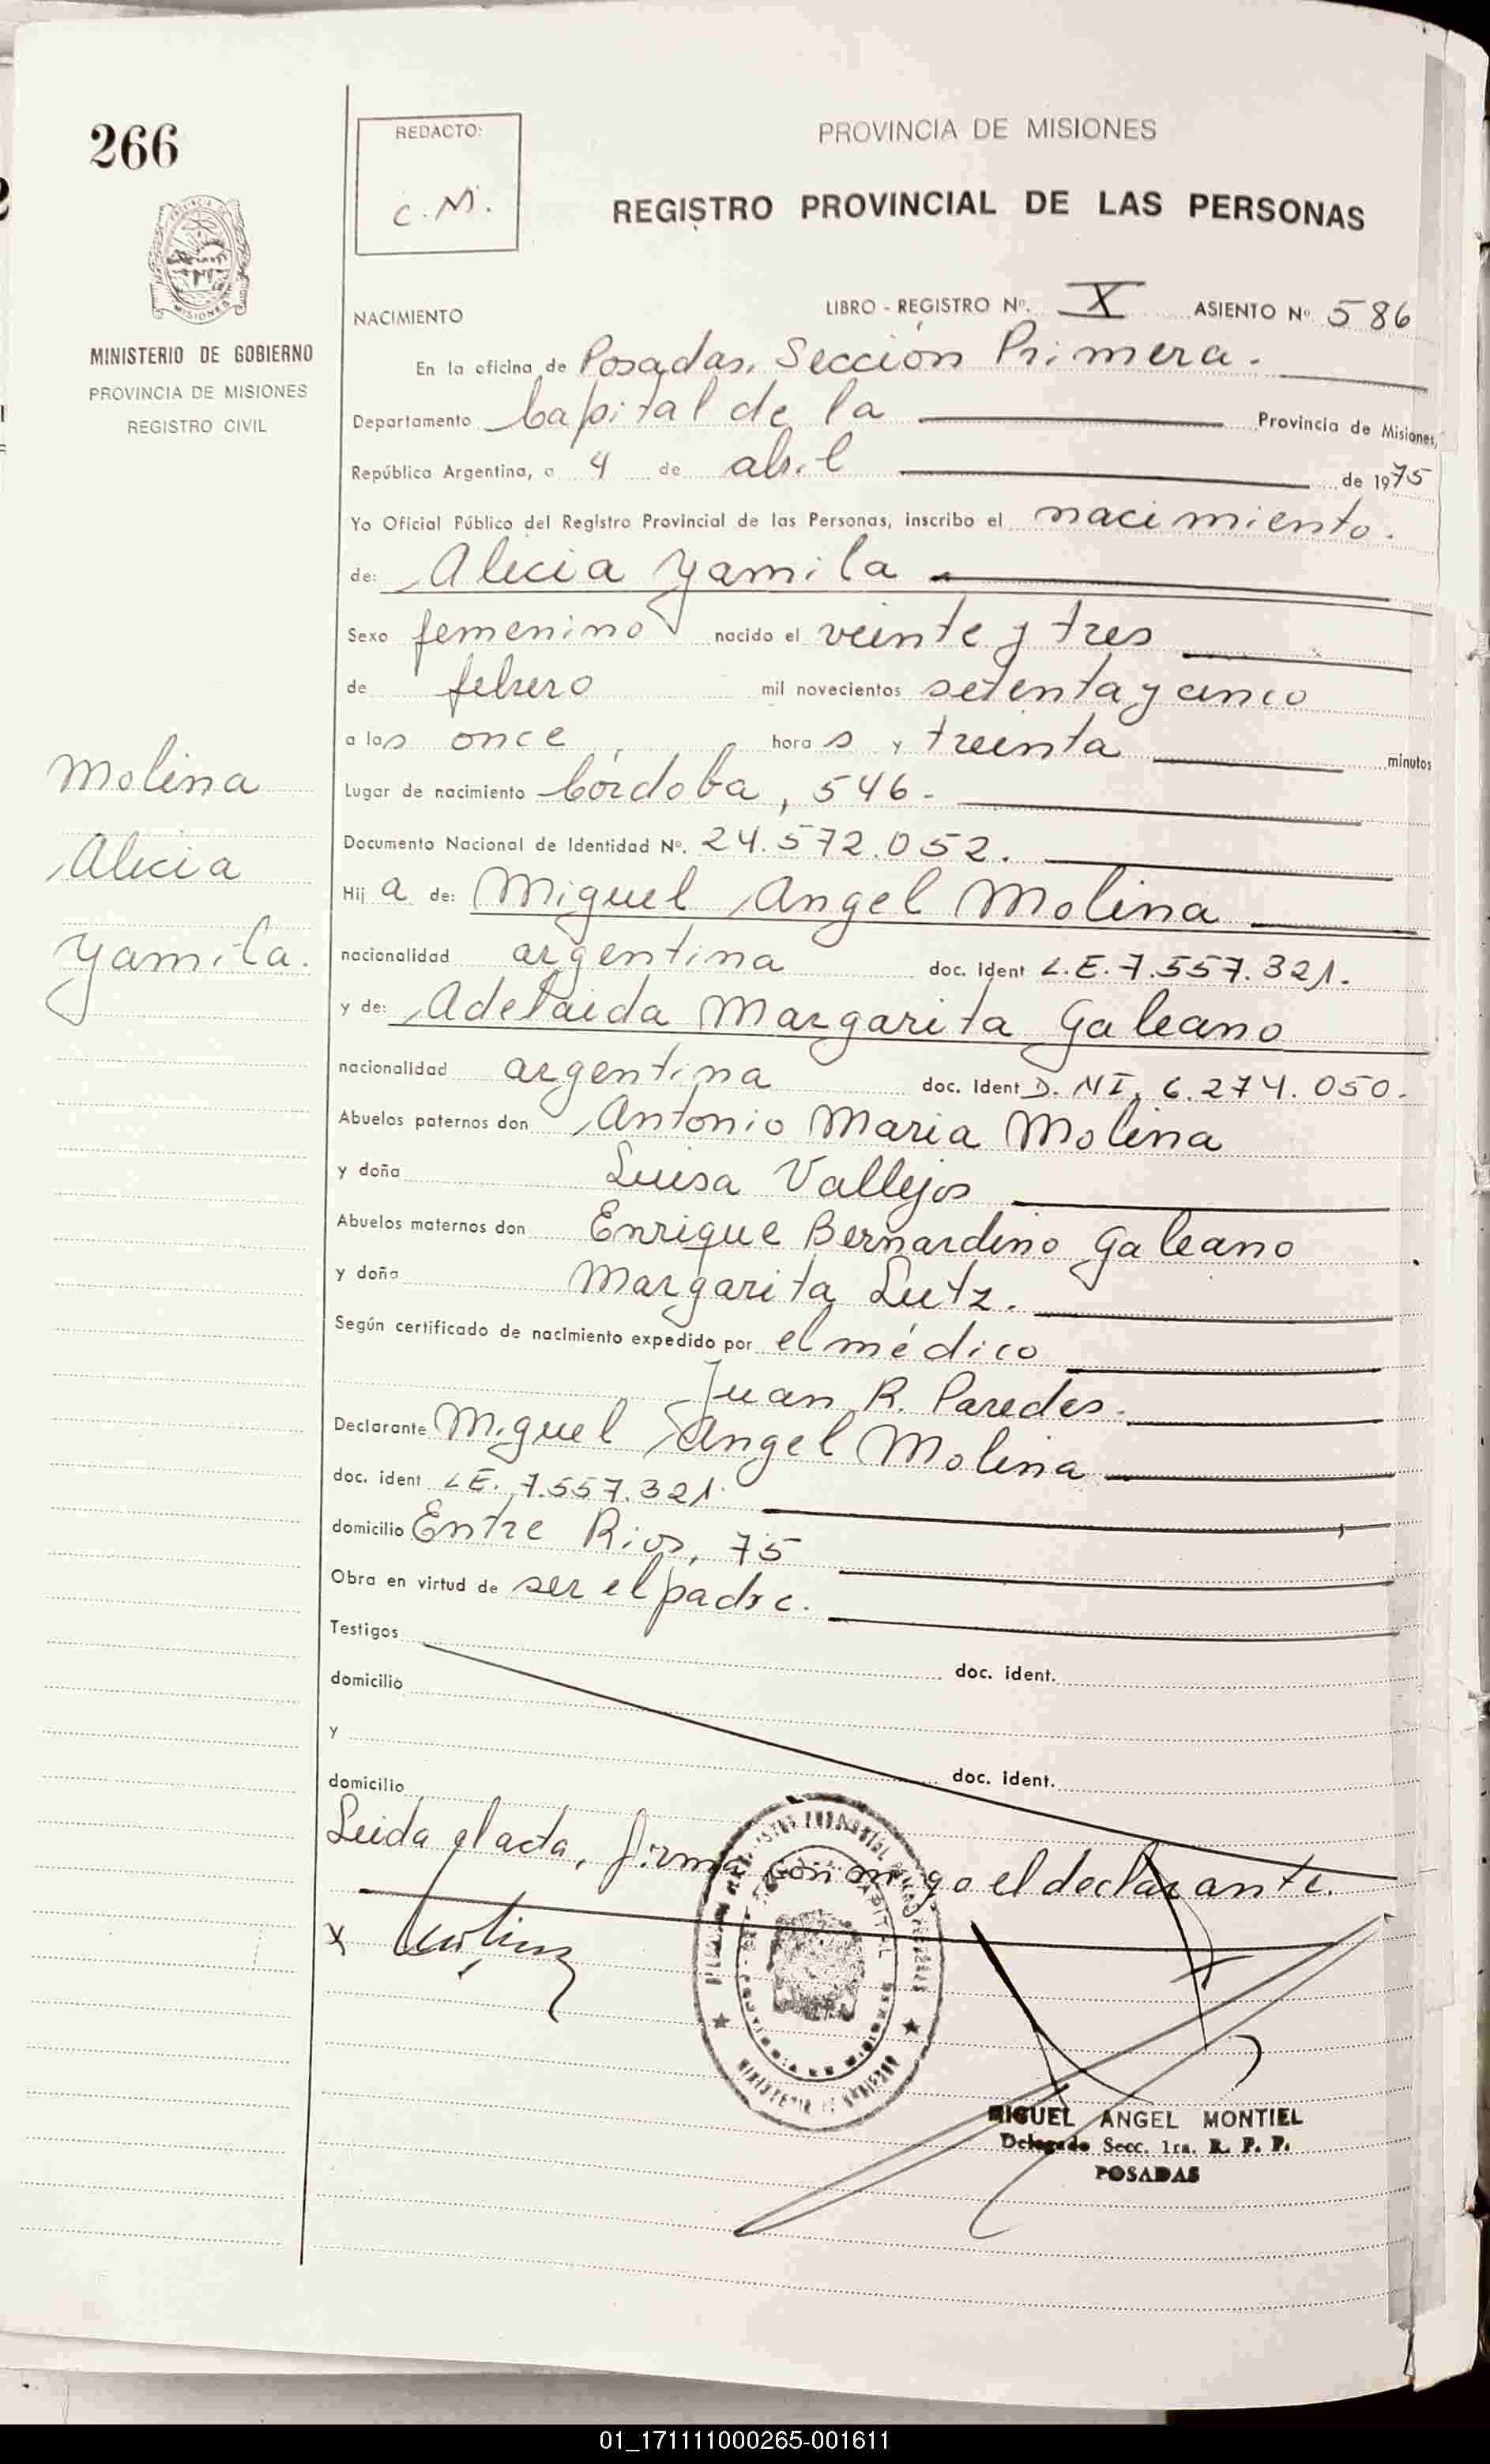 266
REDACTO:
C. M.
PROVINCIA DE MISIONES
REGISTRO PROVINCIAL DE LAS PERSONAS
MISIONES
MINISTERIO DE GOBIERNO
PROVINCIA DE MISIONES
REGISTRO CIVIL
NACIMIENTO
LIBRO - REGISTRO Nº. X ASIENTO Nº 586
En la oficina de Posadas, Sección Primera.
Departamento Capital de la Provincia de Misiones,
República Argentina, a 4 de abril de 1975
Yo Oficial Público del Registro Provincial de las Personas, inscribo el nacimiento.
de: Alicia Yamila
Sexo femenino nacido el veinte y tres
de febrero mil novecientos setenta y cinco
a las once horas y treinta minutos
Molina
Alicia
Yamila.
Lugar de nacimiento Córdoba, 546.
Documento Nacional de Identidad Nº. 24.572.052.
Hija de: Miguel Angel Molina
nacionalidad argentina doc. ident L.E. 7.557.321.
y de: Adelaida Margarita Galeano
nacionalidad argentina doc. Ident D.NI. 6.274.050.
Abuelos paternos don Antonio Maria Molina
y doña Luisa Vallejos
Abuelos maternos don Enrique Bernardino Galeano
y doña Margarita Lutz.
Según certificado de nacimiento expedido por el médico
Juan R. Paredes.
Declarante Miguel Angel Molina
doc. ident L.E. 7.557.321.
domicilio Entre Rios, 75
Obra en virtud de ser el padre.
Testigos doc. ident.
domicilio
y doc. ident.
domicilio
Leida el acta, firma con migo el declarante.
x Molina
MIGUEL ANGEL MONTIEL
Delegado Secc. 1ra. R. P. P.
POSADAS
01_171111000265-001611